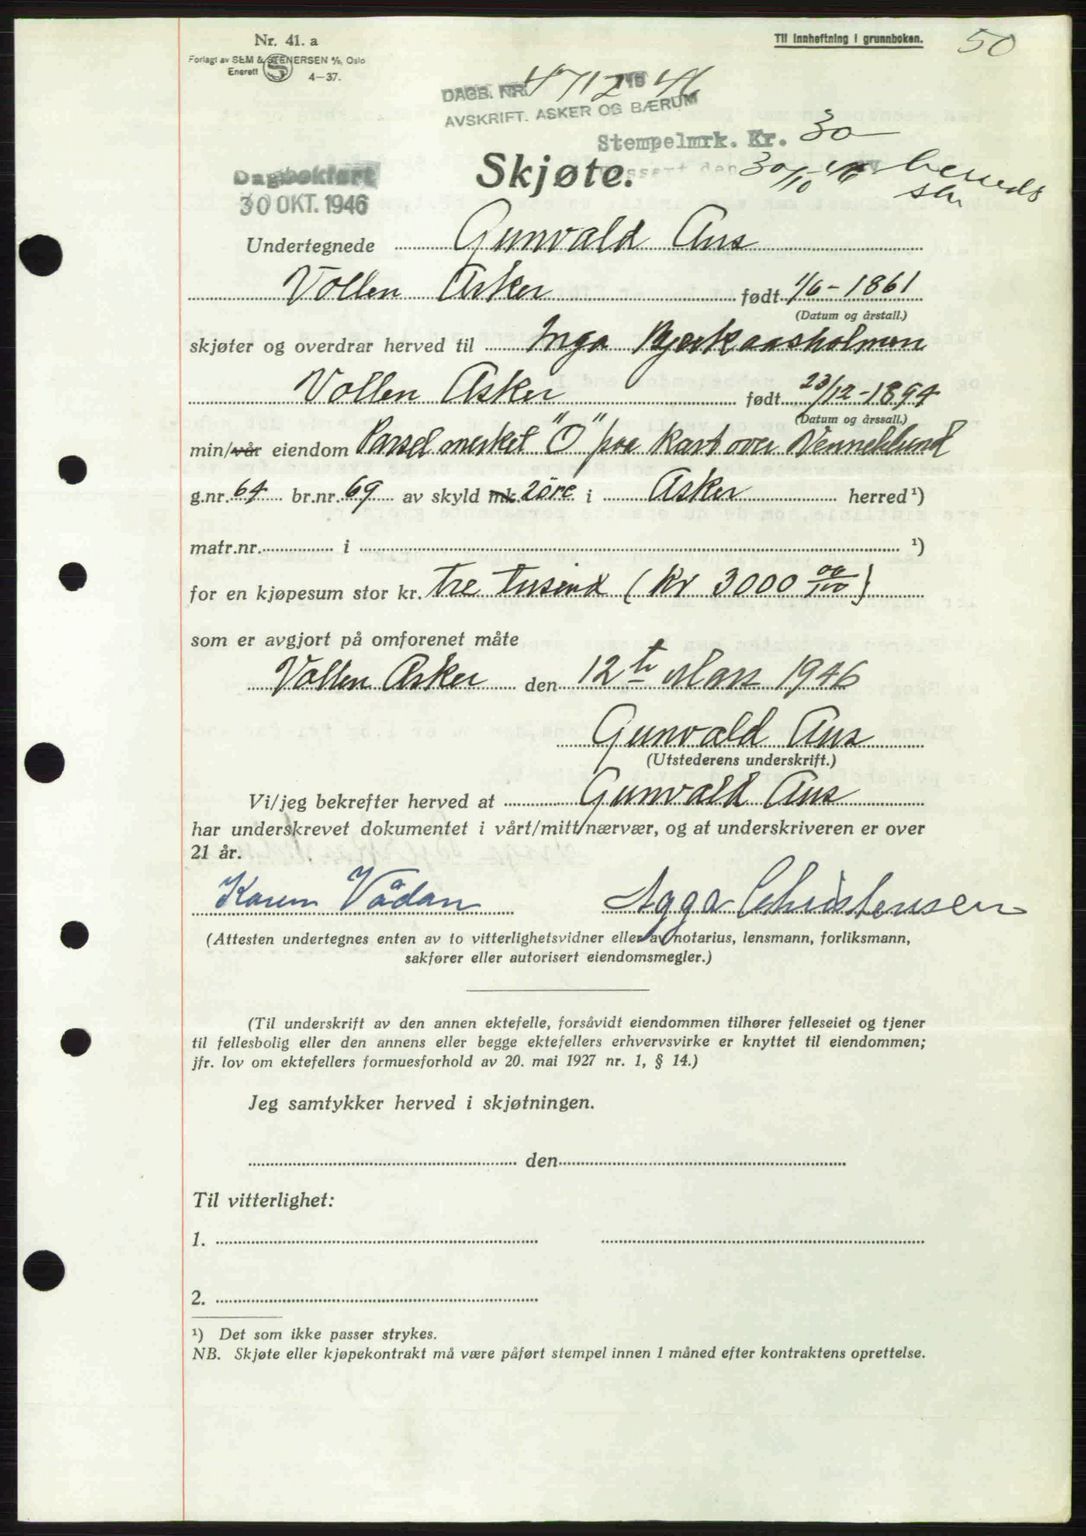 Nr. 41. a
Forlagt av SEM & STENERSEN A/S, Oslo
Enerett
4-37.
Til innheftning i grunnboken.
50
DAGB. NR. 4712 19 46
AVSKRIFT. ASKER OG BÆRUM
Stempelmrk. Kr. 30
30/10 46
Dagbokført
30 OKT. 1946
Skjøte.
Undertegnede Gunvald Aus
Vollen Asker født 1/6 - 1861
(Datum og årstall.)
skjøter og overdrar herved til Inga Bjerkaasholmen
Vollen Asker født 23/12 - 1894
(Datum og årssall.)
min/vår eiendom Parsel merket "O" paa kart over Vennelund
g.nr. 64 br.nr. 69 av skyld mk 2 øre i Asker herred ¹)
matr.nr. i ¹)
for en kjøpesum stor kr. tre tusend (Kr 3000 00/100)
som er avgjort på omforenet måte
Vollen Asker den 12te Mars 1946
Gunvald Aus
(Utstederens underskrift.)
Vi/jeg bekrefter herved at Gunvald Aus
har underskrevet dokumentet i vårt/mitt nærvær, og at underskriveren er over
21 år.
Karen Vådan Agga Christensen
(Attesten undertegnes enten av to vitterlighetsvidner eller av notarius, lensmann, forliksmann,
sakfører eller autorisert eiendomsmegler.)
(Til underskrift av den annen ektefelle, forsåvidt eiendommen tilhører felleseiet og tjener
til fellesbolig eller den annens eller begge ektefellers erhvervsvirke er knyttet til eiendommen;
jfr. lov om ektefellers formuesforhold av 20. mai 1927 nr. 1, § 14.)
Jeg samtykker herved i skjøtningen.
den
Til vitterlighet:
1.
2.
¹) Det som ikke passer strykes.
NB. Skjøte eller kjøpekontrakt må være påført stempel innen 1 måned efter kontraktens oprettelse.